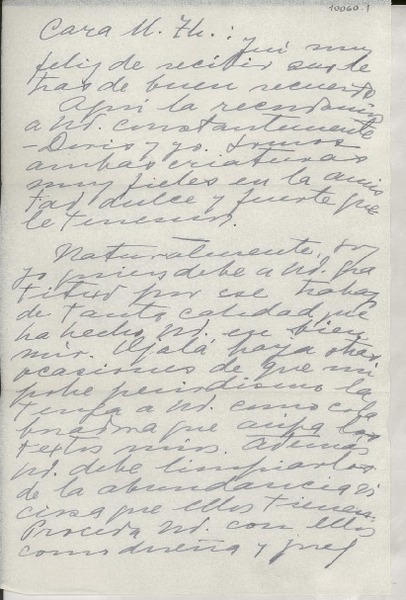 10060.1
Cara M. Th.: fuí muy
feliz de recibir sus le
tras de buen recuerdo
Aquí la recordamos
a Ud. constantemente
- Doris y yo. Somos
ambas criaturas
muy fieles en la amis
tad dulce y fuerte que
le tenemos.
Naturalmente, soy
yo quien debe a Ud. gra
titud por ese trabajo
de tanta calidad que
ha hecho Ud. en bien
mío. Ojalá haya otras
ocasiones de que mi
pobre periodismo la
tenga a Ud. como cola
boradora que aúpa los
textos míos. Además
Ud. debe limpiarlos
de la abundancia vi
ciosa que ellos tienen.
Proceda Ud. con ellos
como dueña y juez